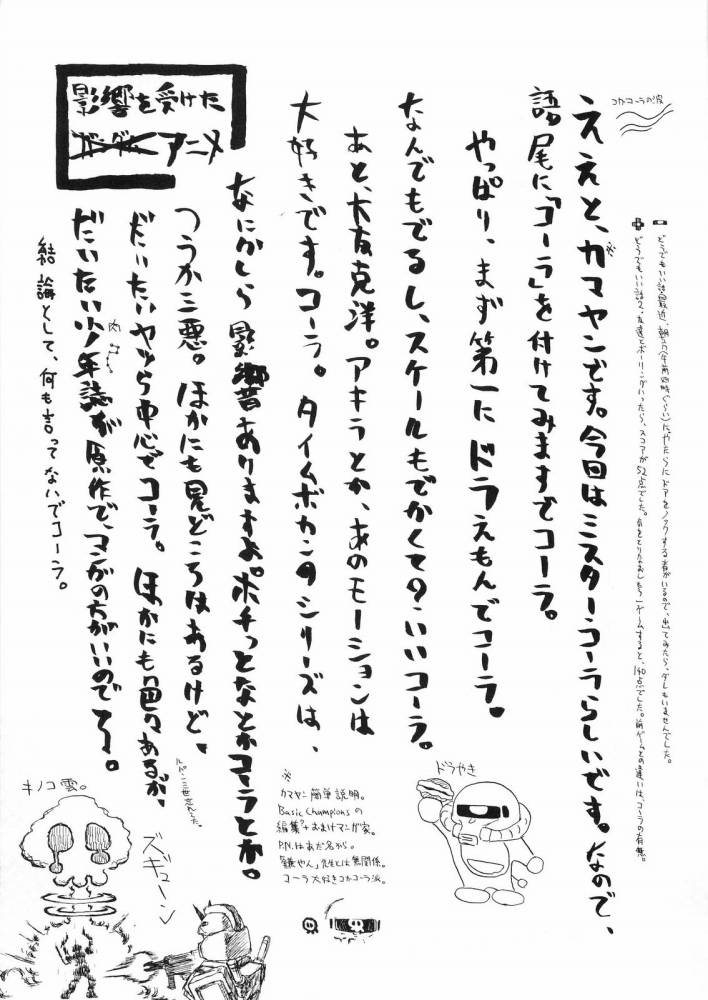 コカコーラの波
どうでもいい話 最近、朝方(午前四時ぐらい)にやたらにドアをノックする者がいるので、出てみたら、ダレもいませんでした。
どうでもいい話2、友達とボーリングいったら、スコアが52点でした。気をとりなおしもう1ゲームすると、140点でした。前ゲームとの違いは、コーラの有無。
ええと、カマヤンです。今回はミスターコーラらしいです。なので、
語尾に「コーラ」を付けてみますでコーラ。
やっぱり、まず第一にドラえもんでコーラ。
なんでもでるし、スケールもでかくての・いいコーラ。
あと、大友克洋。アキラとか、あのモーションは
大好きです。コーラ。タイムボカンのシリーズは、
影響を受けた
ガンダム アニメ
なにかしら影響ありますよ。ポチっとなとかコーラとか。
つうか三悪。ほかにも見どころはあるけど、
だいたいヤツら中心でコーラ。ほかにも色々あるが、
ルパン三世忘れてた。
だいたい少年誌が原作で、マンガの方がいいのでコーラ。
結論として、何も言ってないでコーラ。
※
カマヤン簡単説明。
Basic Championsの
編集?+おまけマンガ家。
P.N.はあだ名から。
「鎌やん」先生とは無関係。
コーラ大好きコカコーラ派。
ドラやき
キノコ雲。
ズギューン